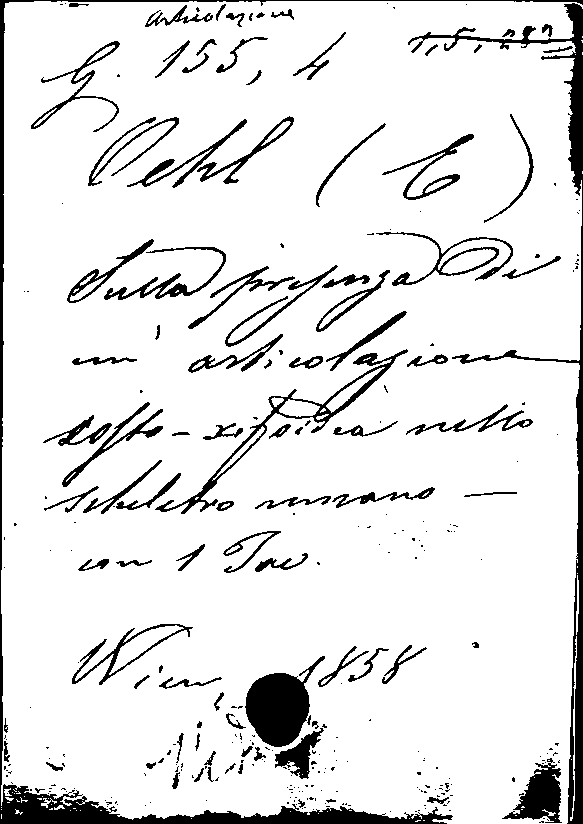 articolazione
G. 155, 4 1, 5, 282
Oehl (E)
Sulla presenza di
un' articolazione
costo-xifoidea nello
scheletro umano —
con 1 Tav.
Wien, 1858